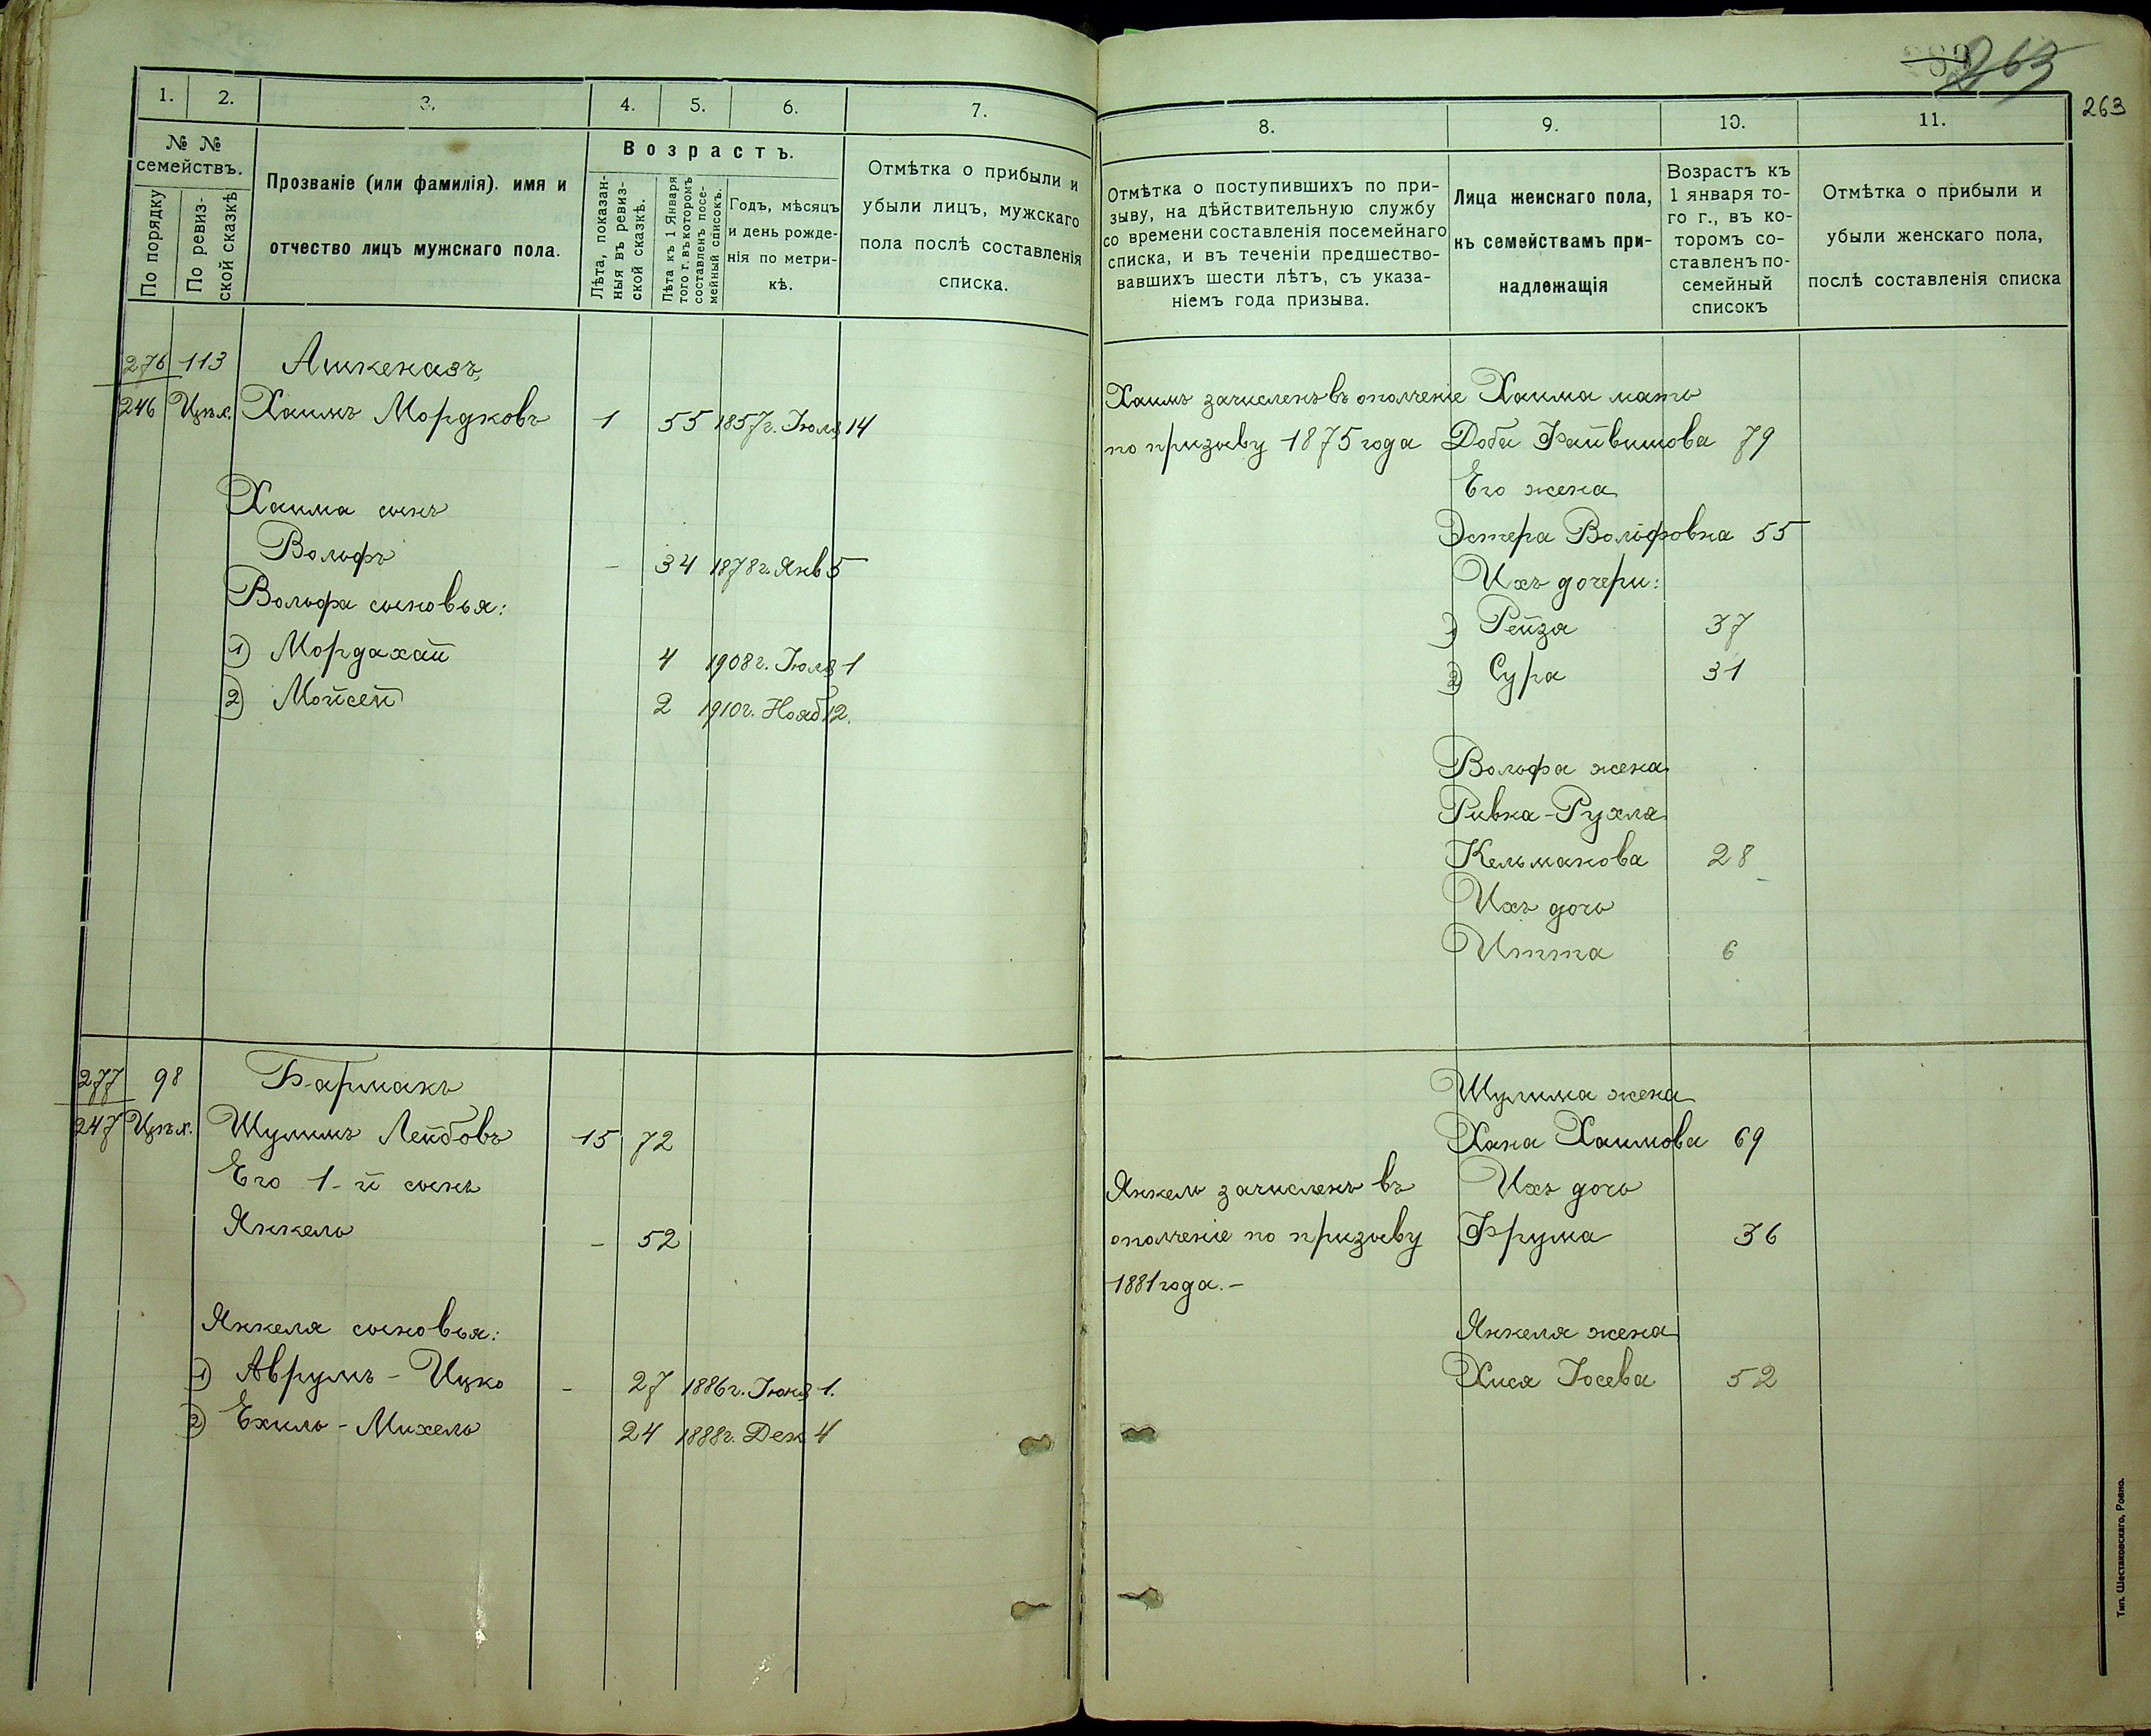 263
263
1. 2. 3. 4. 5. 6. 7.
№ № семействъ.
По порядку
По ревизской сказкѣ
Прозваніе (или фамилія). имя и
отчество лицъ мужскаго пола.
Возрастъ.
Лѣта, показан-
ныя въ ревиз-
ской сказкѣ.
Лѣта къ 1 Января
того г. въ которомъ
составленъ посе-
мейный списокъ.
Годъ, мѣсяцъ
и день рожде-
нія по метри-
кѣ.
Отмѣтка о прибыли и
убыли лицъ, мужскаго
пола послѣ составленія
списка.
276 113 Ашкеназъ
246 Цѣх. Хаимъ Мордковъ 1 55 1857г. Іюля 14
Хаима сынъ
Вольфъ - 34 1878г. Янв 5
Вольфа сыновья:
1) Мордахай 4 1908г. Іюля 1
2) Мойсей 2 1910г. Нояб 12.
277 98 Бармакъ
247 Цѣх. Шулимъ Лейбовъ 15 72
Его 1-й сынъ
Янкель - 52
Янкеля сыновья:
1) Аврумъ-Ицко - 27 1886г. Іюня 1.
2) Ехиль-Михель 24 1888г. Дек 4
8. 9. 10. 11.
Отмѣтка о поступившихъ по при-
зыву, на дѣйствительную службу
со времени составленія посемейнаго
списка, и въ теченіи предшество-
вавшихъ шести лѣтъ, съ указа-
ніемъ года призыва.
Лица женскаго пола,
къ семействамъ при-
надлежащія
Возрастъ къ
1 января то-
го г., въ ко-
торомъ со-
ставленъ по-
семейный
списокъ
Отмѣтка о прибыли и
убыли женскаго пола,
послѣ составленія списка
Хаимъ зачисленъ въ ополченіе Хаима мать
по призыву 1875 года Доба Файвишова 79
Его жена
Эстера Вольфовна 55
Ихъ дочери:
1) Рейза 37
2) Сура 31
Вольфа жена
Ривка-Рухля
Кельманова 28
Ихъ дочь
Итта 6
Шулима жена
Хана Хаимова 69
Янкель зачисленъ въ Ихъ дочь
ополченіе по призыву Фрума 36
1881 года.-
Янкеля жена
Хися Іосева 52
Тип. Шестаковскаго, Ровно.